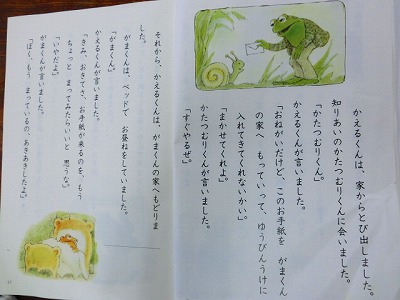 かえるくんは、家からとび出しました。
知りあいのかたつむりくんに会いました。
「かたつむりくん。」
「おねがいだけど、このお手紙を がまくん
の家へ もっていって、ゆうびんうけに
入れてきてくれないかい。」
「まかせてくれよ。」
かたつむりくんが言いました。
「すぐやるぜ。」
それから、かえるくんは、がまくんの家へもどりま
した。
がまくんは、ベッドで お昼ねをしていました。
「がまくん。」
かえるくんが言いました。
「きみ、おきてさ、お手紙が来るのを、もう
ちょっと まってみたらいいと 思うな。」
「いやだよ。」
がまくんが言いました。
「ぼく、もう まっているの、あきあきしたよ。」